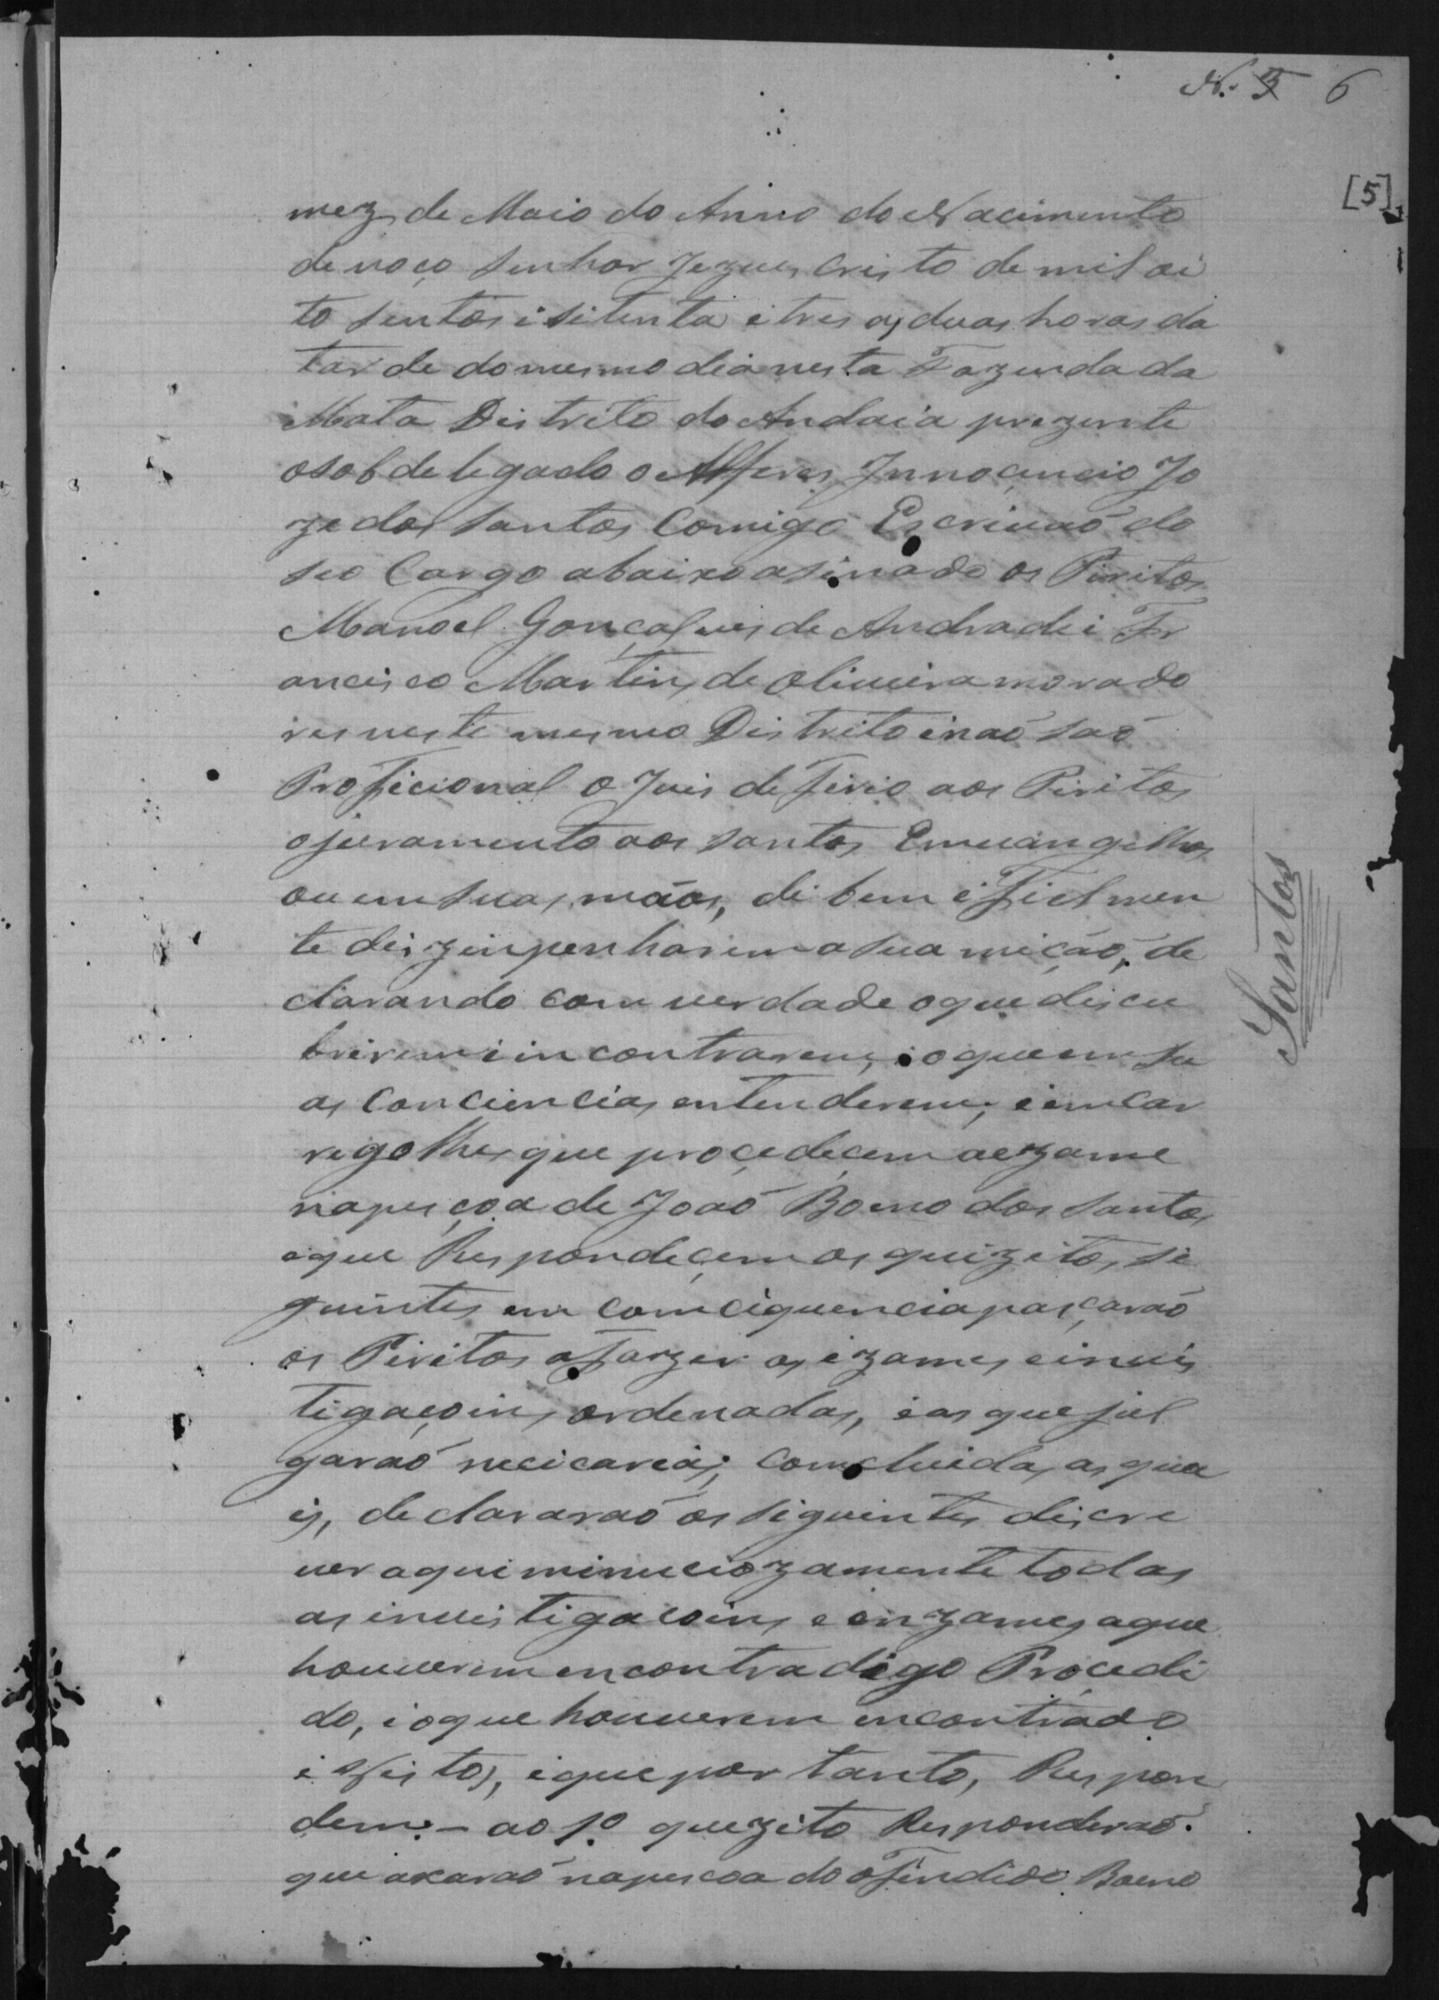 N. 5 6
[5]
mez de Maio do Anno do Nacimento
de noço Senhor Jezus Cristo de mil oi
to sentos i sitenta i tres as duas horas da
tarde do mesmo dia nesta Fazenda da
Mata Distrito do Andaia prezente
o sobdelegado o Alferes Innocencio Jo
ze dos Santos Comigo Escrivaõ do
seo Cargo abaixo asinado os Piritos
Manoel Gonçalves de Andrade i Fr
ancisco Martins de Oliveira morado
res neste mesmo Distrito i naõ saõ
Proficional o Juis defirio aos Piritos
o juramento aos Santos Emvangelhos
ou em suas mãos, di bem i fielmen
te dizzinpenharem a sua miçaõ, de
clarando com verdade o que discu
brirem i incontrarem, i o que em su
as Conciencias entenderem, i emcar
regolhes que proçedeçem a ezame
na pesçoa de Joaõ Boeno dos Santos
e que Respondeçem os quizitos si
guintes em comciquencia pasçaraõ
os Piritos a Fazzer os izames e invis
tigaçoins ordenadas, i as que jul
garaõ necicarias; comcluidas as qua
is, declararaõ os siguintes discre
ver aqui minuciozamente todas
as invistigacoins e inzames a que
houverem encontra digo Procedi
do, i o que houverem encontrado
i Visto, i que por tanto, Respon
dem - ao 1º quezito Responderaõ.
que axaraõ na pescoa do ofendido Boeno
Santos